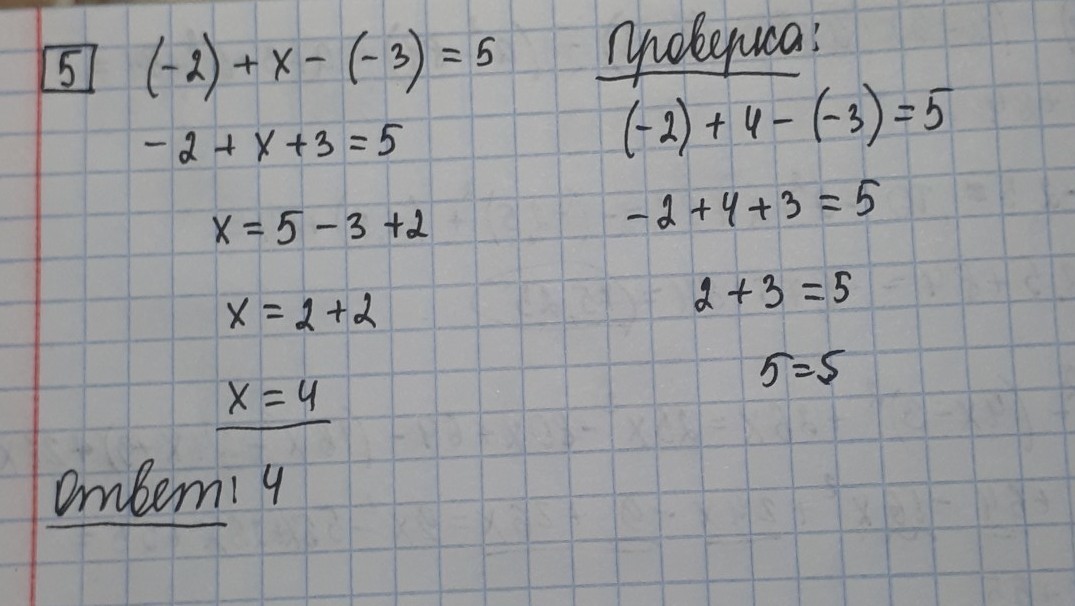 5 (-2) + x - (-3) = 5
-2 + x + 3 = 5
x = 5 - 3 + 2
x = 2 + 2
x = 4
Ответ: 4
Проверка:
(-2) + 4 - (-3) = 5
-2 + 4 + 3 = 5
2 + 3 = 5
5 = 5